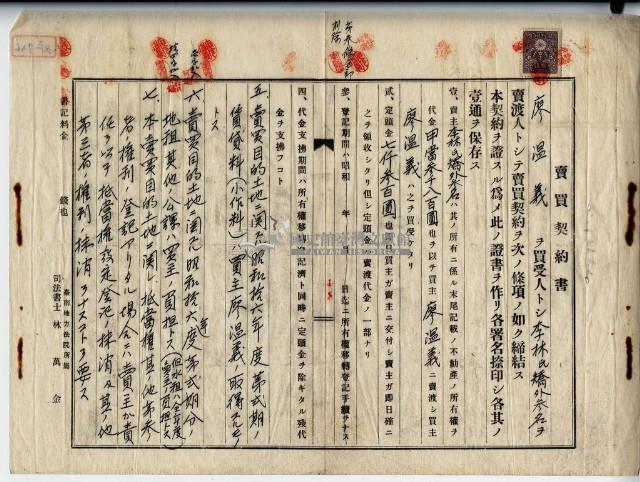 賣買契約書
廖溫義ヲ買受人トシ李林氏矯外参名ヲ
賣渡人トシテ賣買契約ヲ次ノ條項ノ如ク締結ス
本契約ヲ證スル爲メ此ノ證書ヲ作リ各署名捺印シ各其ノ
壹通ヲ保存ス
壹、賣主李林氏矯外参名ハ其ノ所有ニ係ル末尾記載ノ不動產ノ所有權ヲ
代金甲當参千八百圓也ヲ以テ買主廖溫義ヘ賣渡シ買主
廖溫義ハ之ヲ買受ケタリ
貳、定頭金七仟参百圓也ヲ買主ガ賣主ニ交付シ賣主ガ即日確ニ
之ヲ領收シタリ但シ定頭金ハ賣渡代金ノ一部ナリ
参、登記期間ハ昭和 年 月 日迄ニ所有權移轉登記手續ヲナス
四、代金支拂期間ハ所有權移轉登記濟ト同時ニ定頭金ヲ除キタル殘代
金ヲ支拂フコト
五、賣買目的土地ニ関スル昭和拾六年度第弍期ノ
貸貸料(小作料)ハ買主廖溫義ノ取得スルモノ
トス
六、賣買目的土地ニ関スル昭和拾六年度第弍期分ノ
地租其他ノ公課ハ買主ノ負担トス
七、本賣買目的土地ニ関シ抵當權其ノ他第参
者ノ權利ノ登記アリタル場合ハ賣主ガ責
任ヲ以テ抵當權設定登記ノ抹消及其ノ他
第三者ノ權利ノ抹消ヲナスコトヲ要ス
書記料金 錢也
臺南地方法院所屬
司法書士 林萬金
國史館臺灣文獻館
TAIWAN HISTORICA